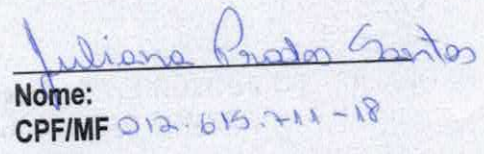 Juliana Prados Santos
Nome:
CPF/MF 012.615.711-18